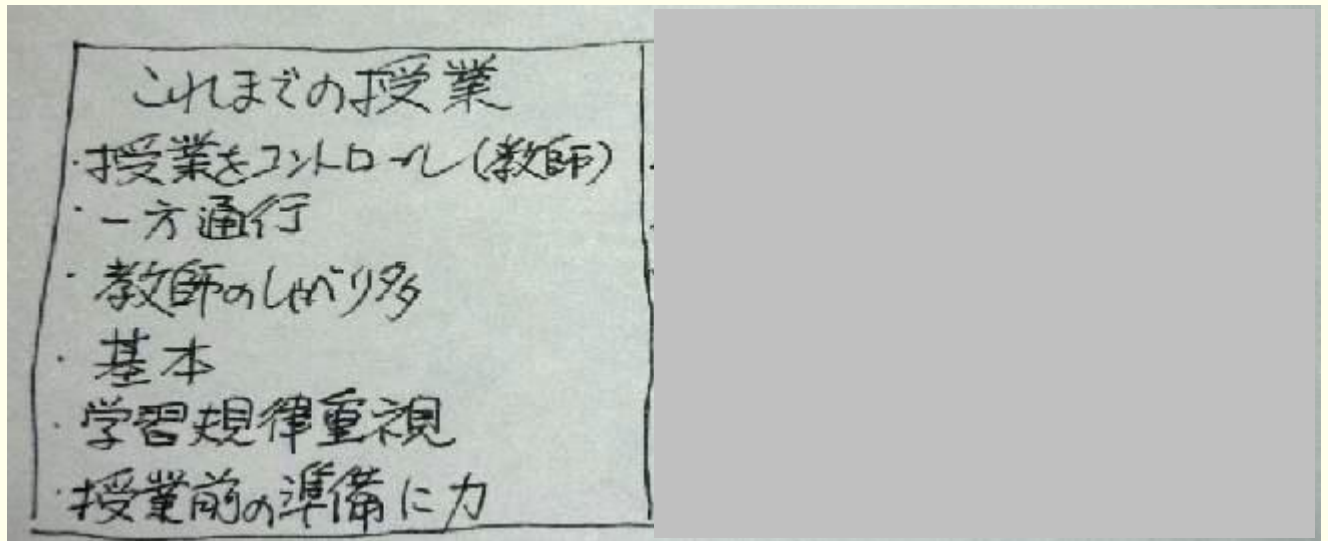 これまでの授業
・授業をコントロール(教師)
・一方通行
・教師のしゃべり多
・基本
・学習規律重視
・授業前の準備に力